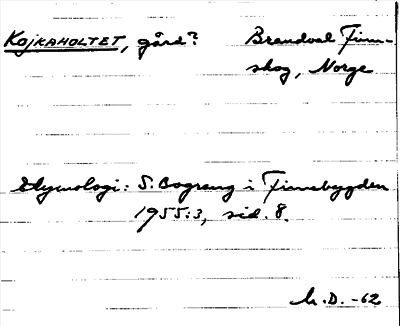 KOJKAHOLTET, gård? Brandval Finn-
skog, Norge
Etymologi: S. Bograng i Finnebygden
1955:3, sid. 8.
M.D. -62